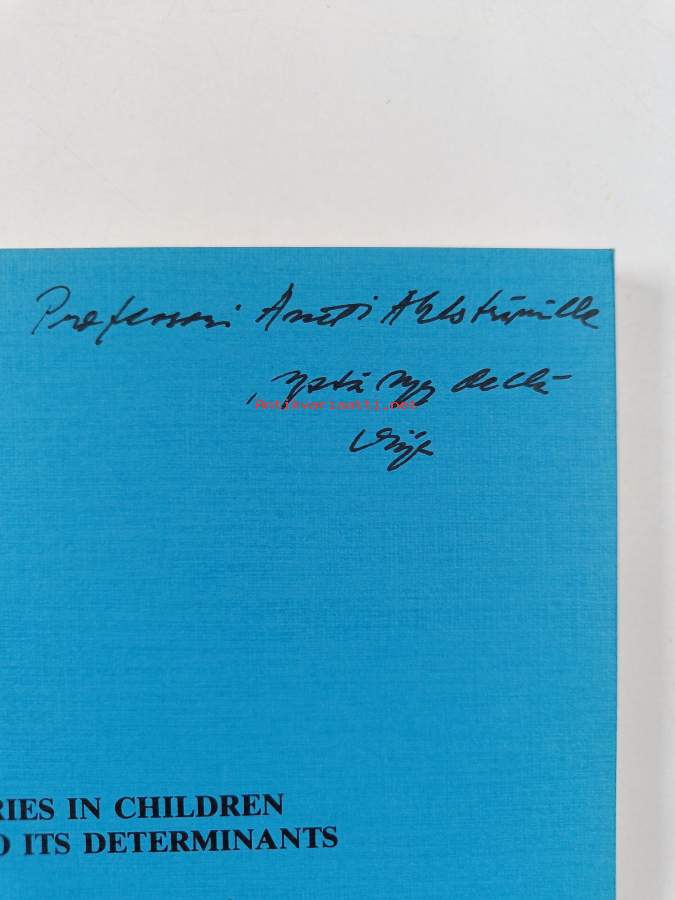 Professori Antti Ahlströmille
ystävyydellä
Antikvariaatti.net
RIES IN CHILDREN
D ITS DETERMINANTS